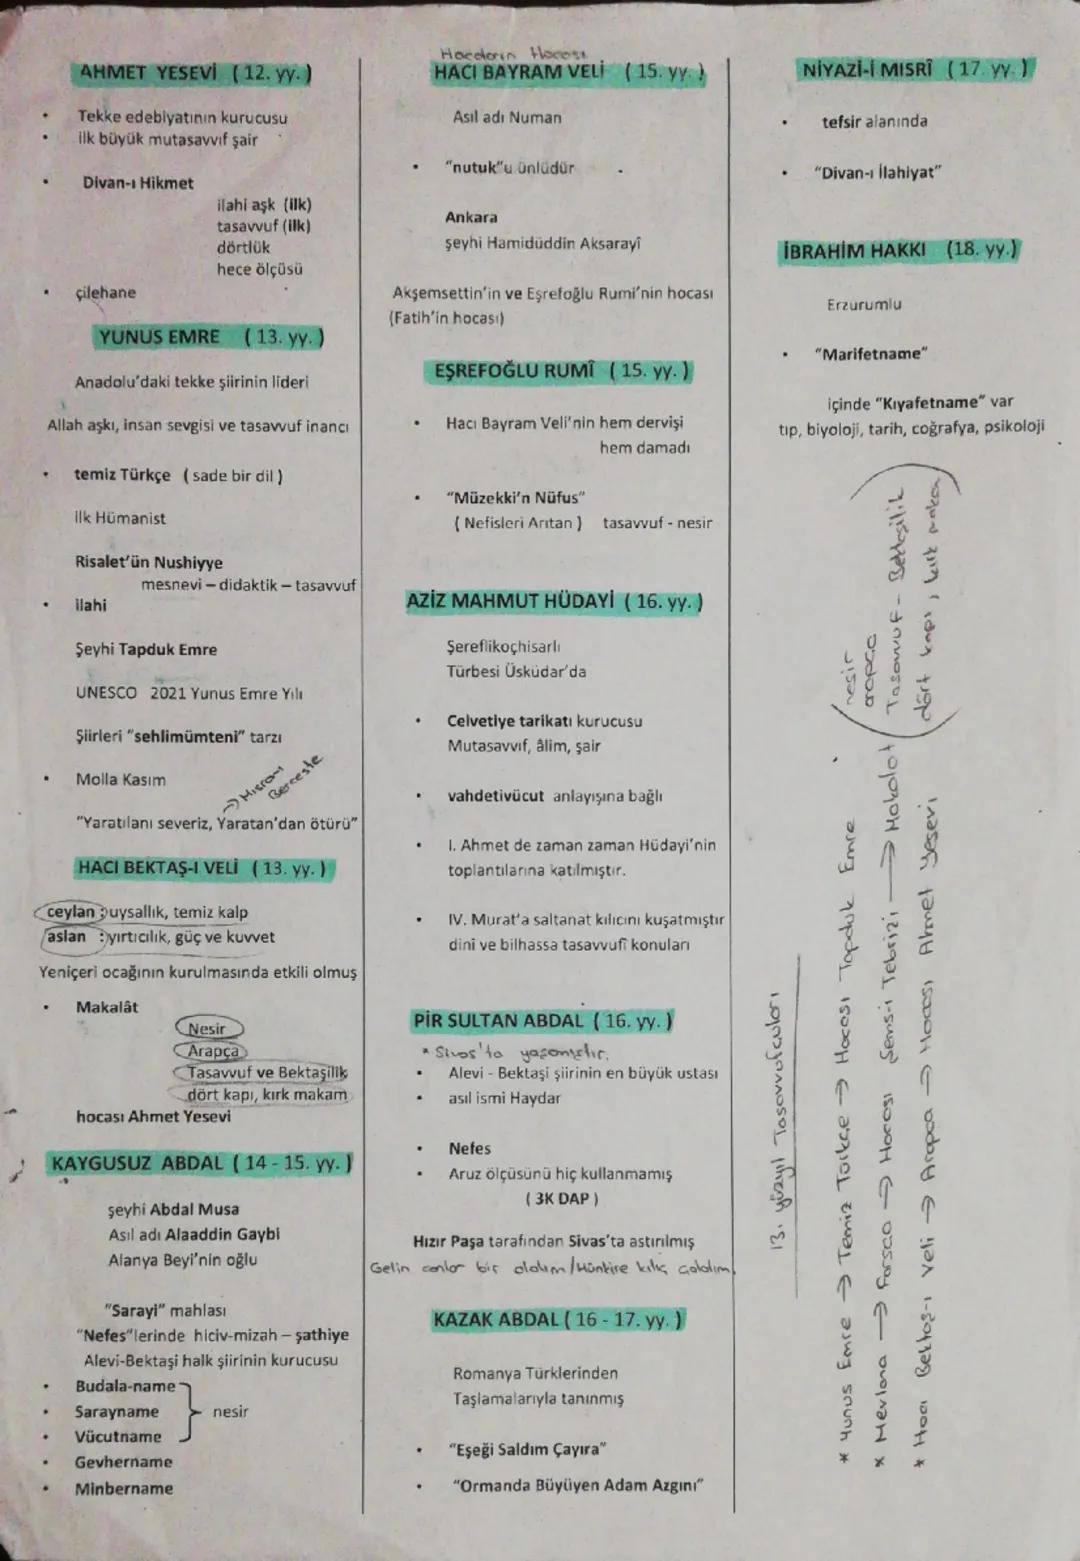 AHMET YESEVİ ( 12. yy. )
Tekke edebiyatının kurucusu
ilk büyük mutasavvıf şair
Divan-ı Hikmet
ilahi aşk (ilk)
tasavvuf (ilk)
dörtlük
hece ölçüsü
çilehane
YUNUS EMRE ( 13. yy. )
Anadolu'daki tekke şiirinin lideri
Allah aşkı, insan sevgisi ve tasavvuf inancı
temiz Türkçe ( sade bir dil )
İlk Hümanist
Risalet'ün Nushiyye
mesnevi – didaktik – tasavvuf
ilahi
Şeyhi Tapduk Emre
UNESCO 2021 Yunus Emre Yılı
Şiirleri "sehlimümteni" tarzı
Molla Kasım
→ Mısraı
Berceste
"Yaratılanı severiz, Yaratan'dan ötürü"
HACI BEKTAŞ-I VELİ ( 13. yy. )
ceylan : uysallık, temiz kalp
aslan : yırtıcılık, güç ve kuvvet
Yeniçeri ocağının kurulmasında etkili olmuş
Makalât
Nesir
Arapça
Tasavvuf ve Bektaşilik
dört kapı, kırk makam
hocası Ahmet Yesevi
KAYGUSUZ ABDAL ( 14 - 15. yy. )
şeyhi Abdal Musa
Asıl adı Alaaddin Gaybi
Alanya Beyi'nin oğlu
"Sarayi" mahlası
"Nefes"lerinde hiciv-mizah – şathiye
Alevi-Bektaşi halk şiirinin kurucusu
Budala-name
Sarayname nesir
Vücutname
Gevhername
Minbername
Hocaların Hocası
HACI BAYRAM VELİ ( 15. yy. )
Asıl adı Numan
"nutuk"u ünlüdür
Ankara
şeyhi Hamidüddin Aksarayî
Akşemsettin'in ve Eşrefoğlu Rumi'nin hocası
(Fatih'in hocası)
EŞREFOĞLU RUMÎ ( 15. yy. )
Hacı Bayram Veli'nin hem dervişi
hem damadı
"Müzekki'n Nüfus"
( Nefisleri Arıtan ) tasavvuf - nesir
AZİZ MAHMUT HÜDAYİ ( 16. yy. )
Şereflikoçhisarlı
Türbesi Üsküdar'da
Celvetiye tarikatı kurucusu
Mutasavvıf, âlim, şair
vahdetivücut anlayışına bağlı
I. Ahmet de zaman zaman Hüdayi'nin
toplantılarına katılmıştır.
IV. Murat'a saltanat kılıcını kuşatmıştır
dini ve bilhassa tasavvufî konuları
PİR SULTAN ABDAL ( 16. yy. )
* Sivas'ta yaşamıştır.
Alevi - Bektaşi şiirinin en büyük ustası
asıl ismi Haydar
Nefes
Aruz ölçüsünü hiç kullanmamış
( 3K DAP )
Hızır Paşa tarafından Sivas'ta astırılmış
Gelin canlar bir olalım / Münkire kılıç çalalım
KAZAK ABDAL ( 16 - 17. yy. )
Romanya Türklerinden
Taşlamalarıyla tanınmış
"Eşeği Saldım Çayıra"
"Ormanda Büyüyen Adam Azgını"
NİYAZİ-İ MISRÎ ( 17. yy. )
tefsir alanında
"Divan-ı İlahiyat"
İBRAHİM HAKKI (18. yy.)
Erzurumlu
"Marifetname"
içinde "Kıyafetname" var
tıp, biyoloji, tarih, coğrafya, psikoloji
13. yüzyıl Tasavvufcuları
* Yunus Emre → Temiz Türkçe → Hocası Tapduk Emre
* Mevlana → Farsça → Hocası Şems-i Tebrizi
* Hacı Bektaş-ı Veli → Arapça → Hocası Ahmet Yesevi
→ Makalat
nesir
arapça
Tasavvuf - Bektaşilik
dört kapı, kırk makam